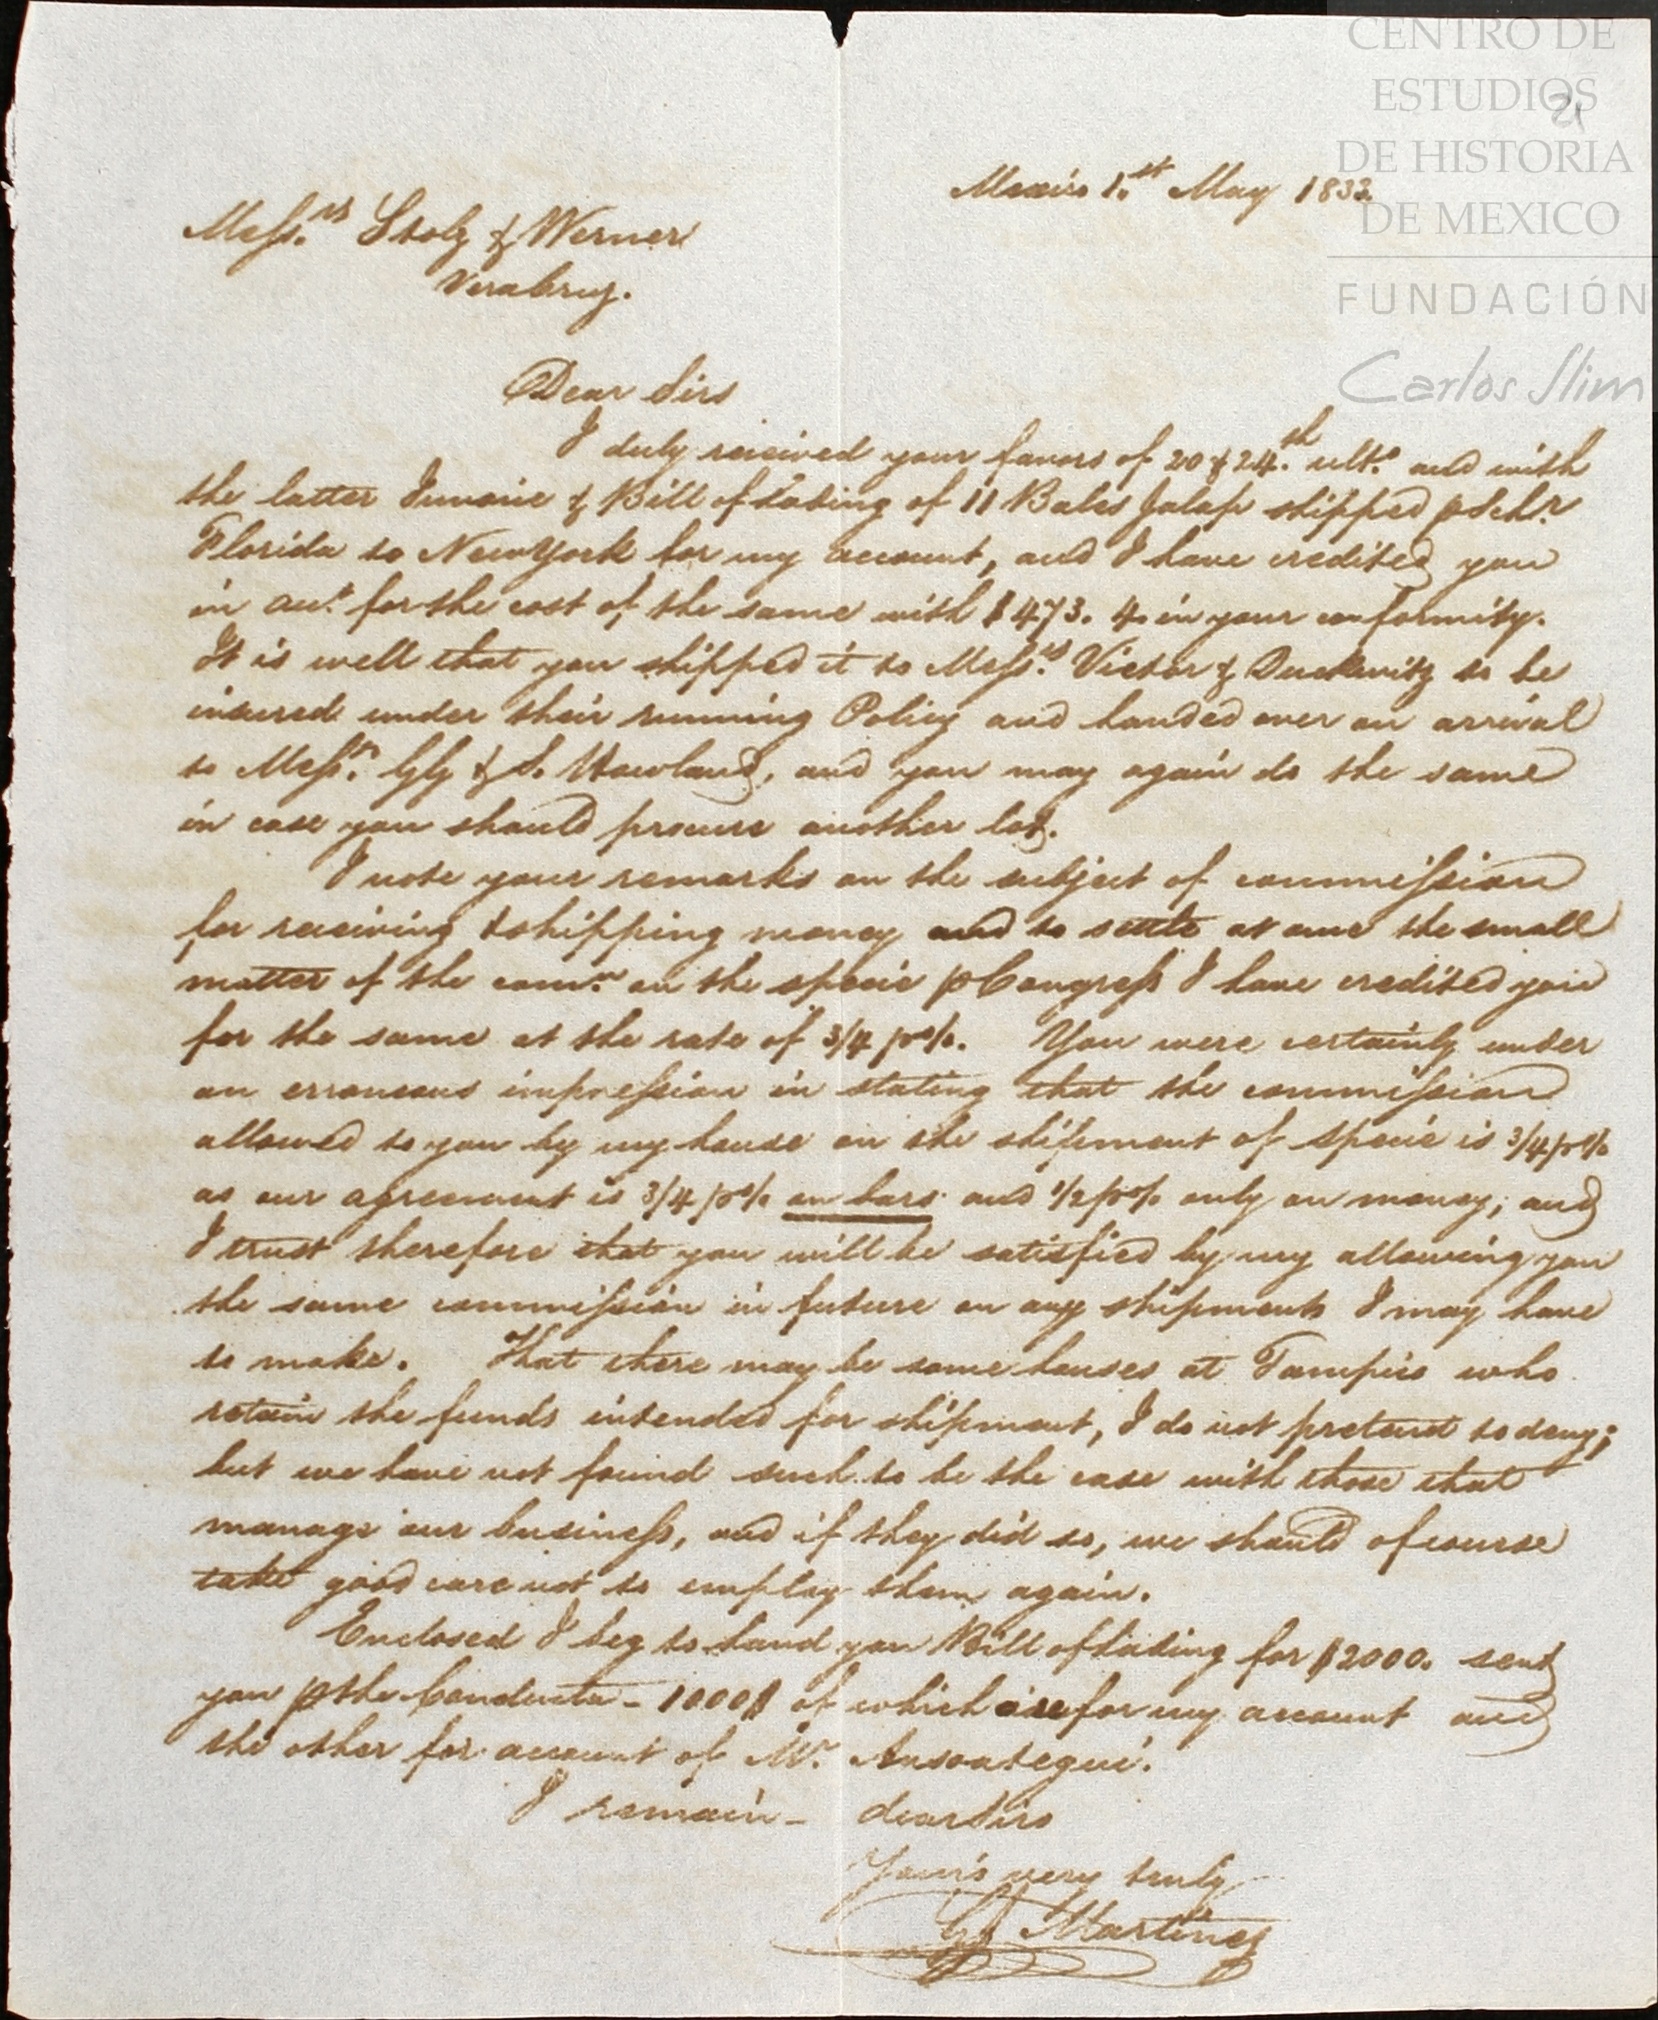 CENTRO DE
ESTUDIOS
DE HISTORIA
DE MEXICO
FUNDACIÓN
Carlos Slim
21
Mexico 1.st May 1833
Mess.rs Stolz & Werner
Veracruz.
Dear Sirs
I duly received your favors of 20 & 24.th ult.o and with
the latter Invoice & Bill of Lading of 11 Bales Jalap shipped p Sch.r
Florida to New York for my account, and I have credited you
in acc.t for the cost of the same with $473. 4. in your conformity.
It is well that you shipped it to Mess.rs Victor & Duckwitz to be
insured under their running Policy and handed over on arrival
to Mess.rs G G & S. Howland, and you may again do the same
in case you should procure another lot.
I note your remarks on the subject of commission
for receiving & shipping money and to settle at once the small
matter of the com.n on the specie p Congress I have credited you
for the same at the rate of 3/4 p%. You were certainly under
an erroneous impression in stating that the commission
allowed to you by my house on the shipment of specie is 3/4 p%
as our agreement is 3/4 p% on bars and 1/2 p% only on money; and
I trust therefore that you will be satisfied by my allowing you
the same commission in future on any shipments I may have
to make. That there may be some houses at Tampico who
retain the funds intended for shipment, I do not pretend to deny;
but we have not found such to be the case with those that
manage our business, and if they did so, we should of course
take good care not to employ them again.
Enclosed I beg to hand you Bill of Lading for $2000. sent
you p the Conducta - 1000$ of which are for my account and
the other for account of Mr. Ansoategui.
I remain - dear Sirs
Your's very truly
Martinez